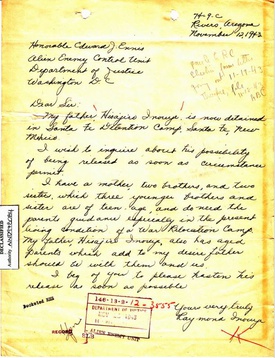 H-9-C
Rivers, Arizona
November 12, 1943
Honorable Edward J. Ennis
Alien Enemy Control Unit
Department of Justice
Washington D C
Dear Sir:
My father, Hisajiro Inouye, is now detained
in Santa Fe Detention Camp, Santa Fe, New
Mexico
I wish to inquire about his possibility
of being released as soon as circumstance
permit.
I have a mother, two brothers, and two
sisters, which three younger brothers and
sister are of teen age, and do need the
parent guidance especially in the present
living condition of a War Relocation Camp.
My father Hisajiro Inouye, also has aged
parents which add to my desire father
should be with them and us.
I beg of you to please hasten his
release as soon as possible
Yours very truly
Raymond Inouye
DECLASSIFIED
Authority
146-13-2-
DEPARTMENT OF JUSTICE
RECORD
ALIEN ENEMY UNIT